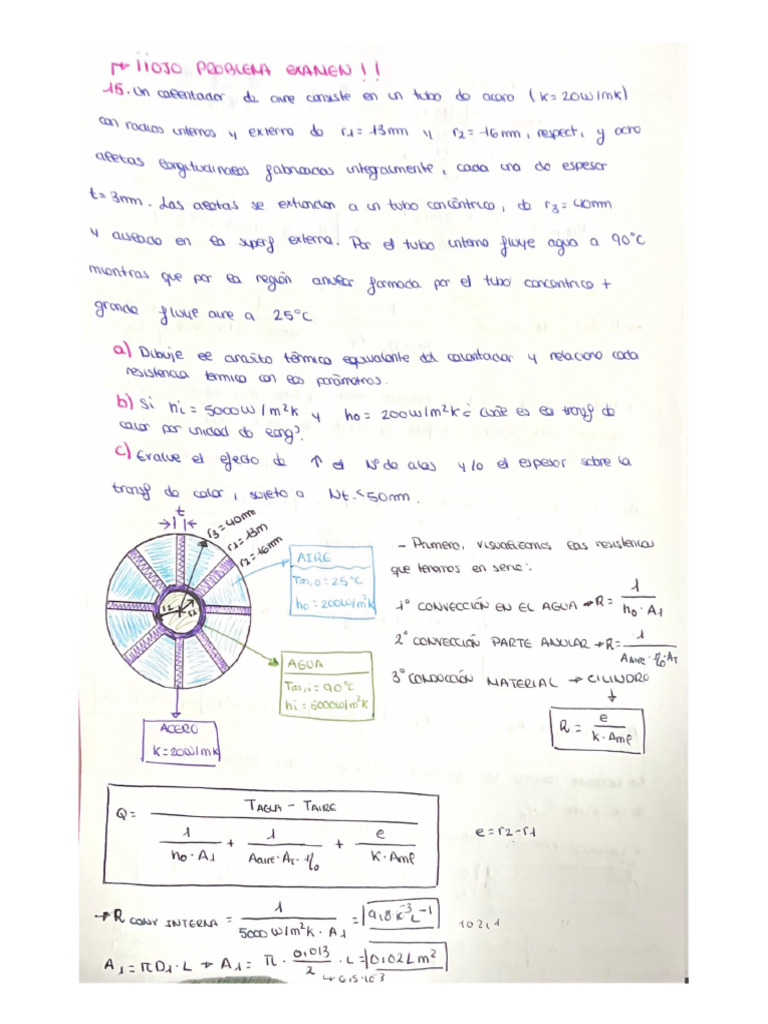 ¡¡OJO PROBLEMA EXAMEN!!
15. Un calentador de aire consiste en un tubo de acero (k=20W/mK)
con radios internos y externo de r1=13mm y r2=16mm, respect, y ocho
aletas longitudinales fabricadas integralmente, cada una de espesor
t=3mm. Las aletas se extienden a un tubo concéntrico, de r3=40mm
y aislado en la superf externa. Por el tubo interno fluye agua a 90°C
mientras que por la región anular formada por el tubo concentrico +
grande fluye aire a 25°C
a) Dibuje el circuito térmico equivalente del calentador y relacione cada
resistencia termica con los parámetros.
b) Si hi = 5000W/m²K y ho = 200W/m²K ¿cuál es la transf de
calor por unidad de long?
c) Evalue el efecto de ↑ el Nº de alas y/o el espesor sobre la
transf de calor, sujeto a Nt < 50mm.
t
r3=40mm
r1=13m
r2=16mm
AIRE
T∞,o = 25°C
ho = 200W/m²K
AGUA
T∞,i = 90°C
hi = 5000W/m²K
ACERO
K=20W/mK
- Primero, visualizamos las resistencia
que tenemos en serie:
1º CONVECCIÓN EN EL AGUA → R = 1 / ho · A1
2º CONVECCIÓN PARTE ANULAR → R = 1 / Aaire · η0 · AT
3º CONDUCCIÓN MATERIAL → CILINDRO
R = e / K · Aml
Q = TAGUA - TAIRE / 1 / ho · A1 + 1 / Aaire · AT · η0 + e / K · Aml
e = r2 - r1
→ R CONV INTERNA = 1 / 5000 W/m²K · A1 = 9,8 K⁻³ L⁻¹
102,1
A1 = π D1 · L → A1 = π · 0,013 / 2 · L = 0,02L m²